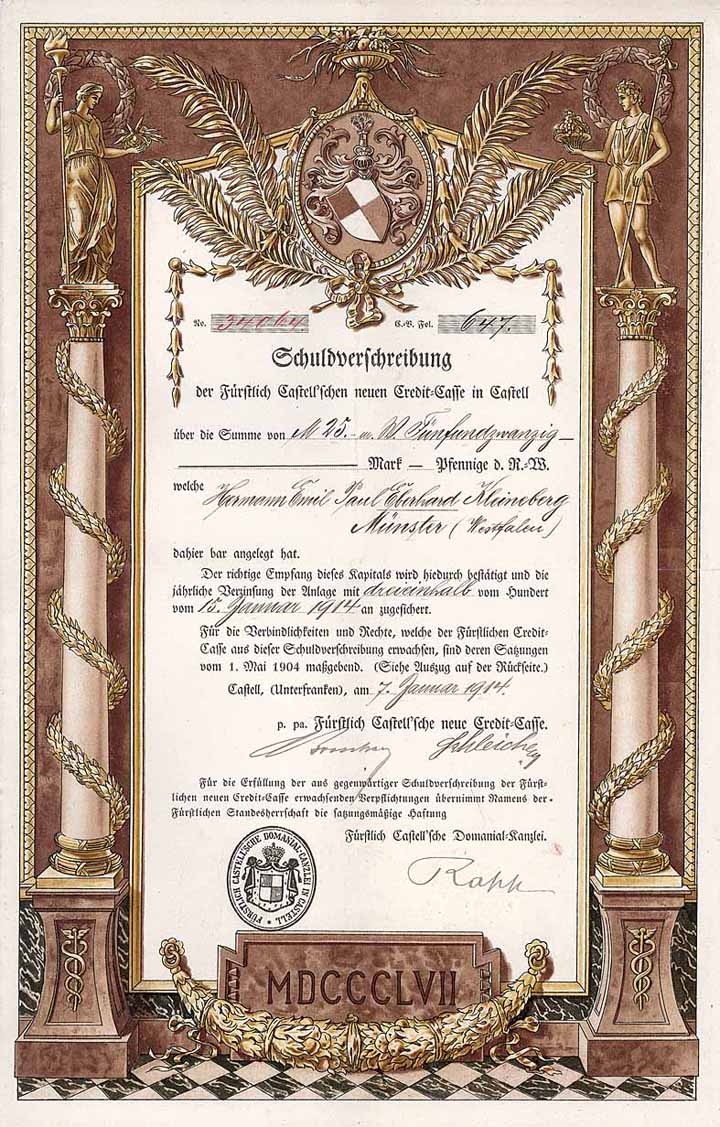 No. 34064 C.-B. Fol. 647.
Schuldverschreibung
der Fürstlich Castell'schen neuen Credit-Casse in Castell
über die Summe von M 25.- Fünfundzwanzig —
Mark — Pfennige d. R.-W.
welche Hermann Emil Paul Eberhard Kleineberg
Münster (Westfalen)
dahier bar angelegt hat.
Der richtige Empfang dieses Kapitals wird hiedurch bestätigt und die
jährliche Verzinsung der Anlage mit dreieinhalb vom Hundert
vom 15. Januar 1914 an zugesichert.
Für die Verbindlichkeiten und Rechte, welche der Fürstlichen Credit-
Casse aus dieser Schuldverschreibung erwachsen, sind deren Satzungen
vom 1. Mai 1904 maßgebend. (Siehe Auszug auf der Rückseite.)
Castell, (Unterfranken), am 7. Januar 1914.
p. pa. Fürstlich Castell'sche neue Credit-Casse.
Für die Erfüllung der aus gegenwärtiger Schuldverschreibung der Fürst-
lichen neuen Credit-Casse erwachsenden Verpflichtungen übernimmt Namens der
Fürstlichen Standesherrschaft die satzungsmäßige Haftung
Fürstlich Castell'sche Domanial-Kanzlei.
FÜRSTLICH CASTELL'SCHE DOMANIAL-CANZLEI IN CASTELL
Rapp
MDCCCLVII